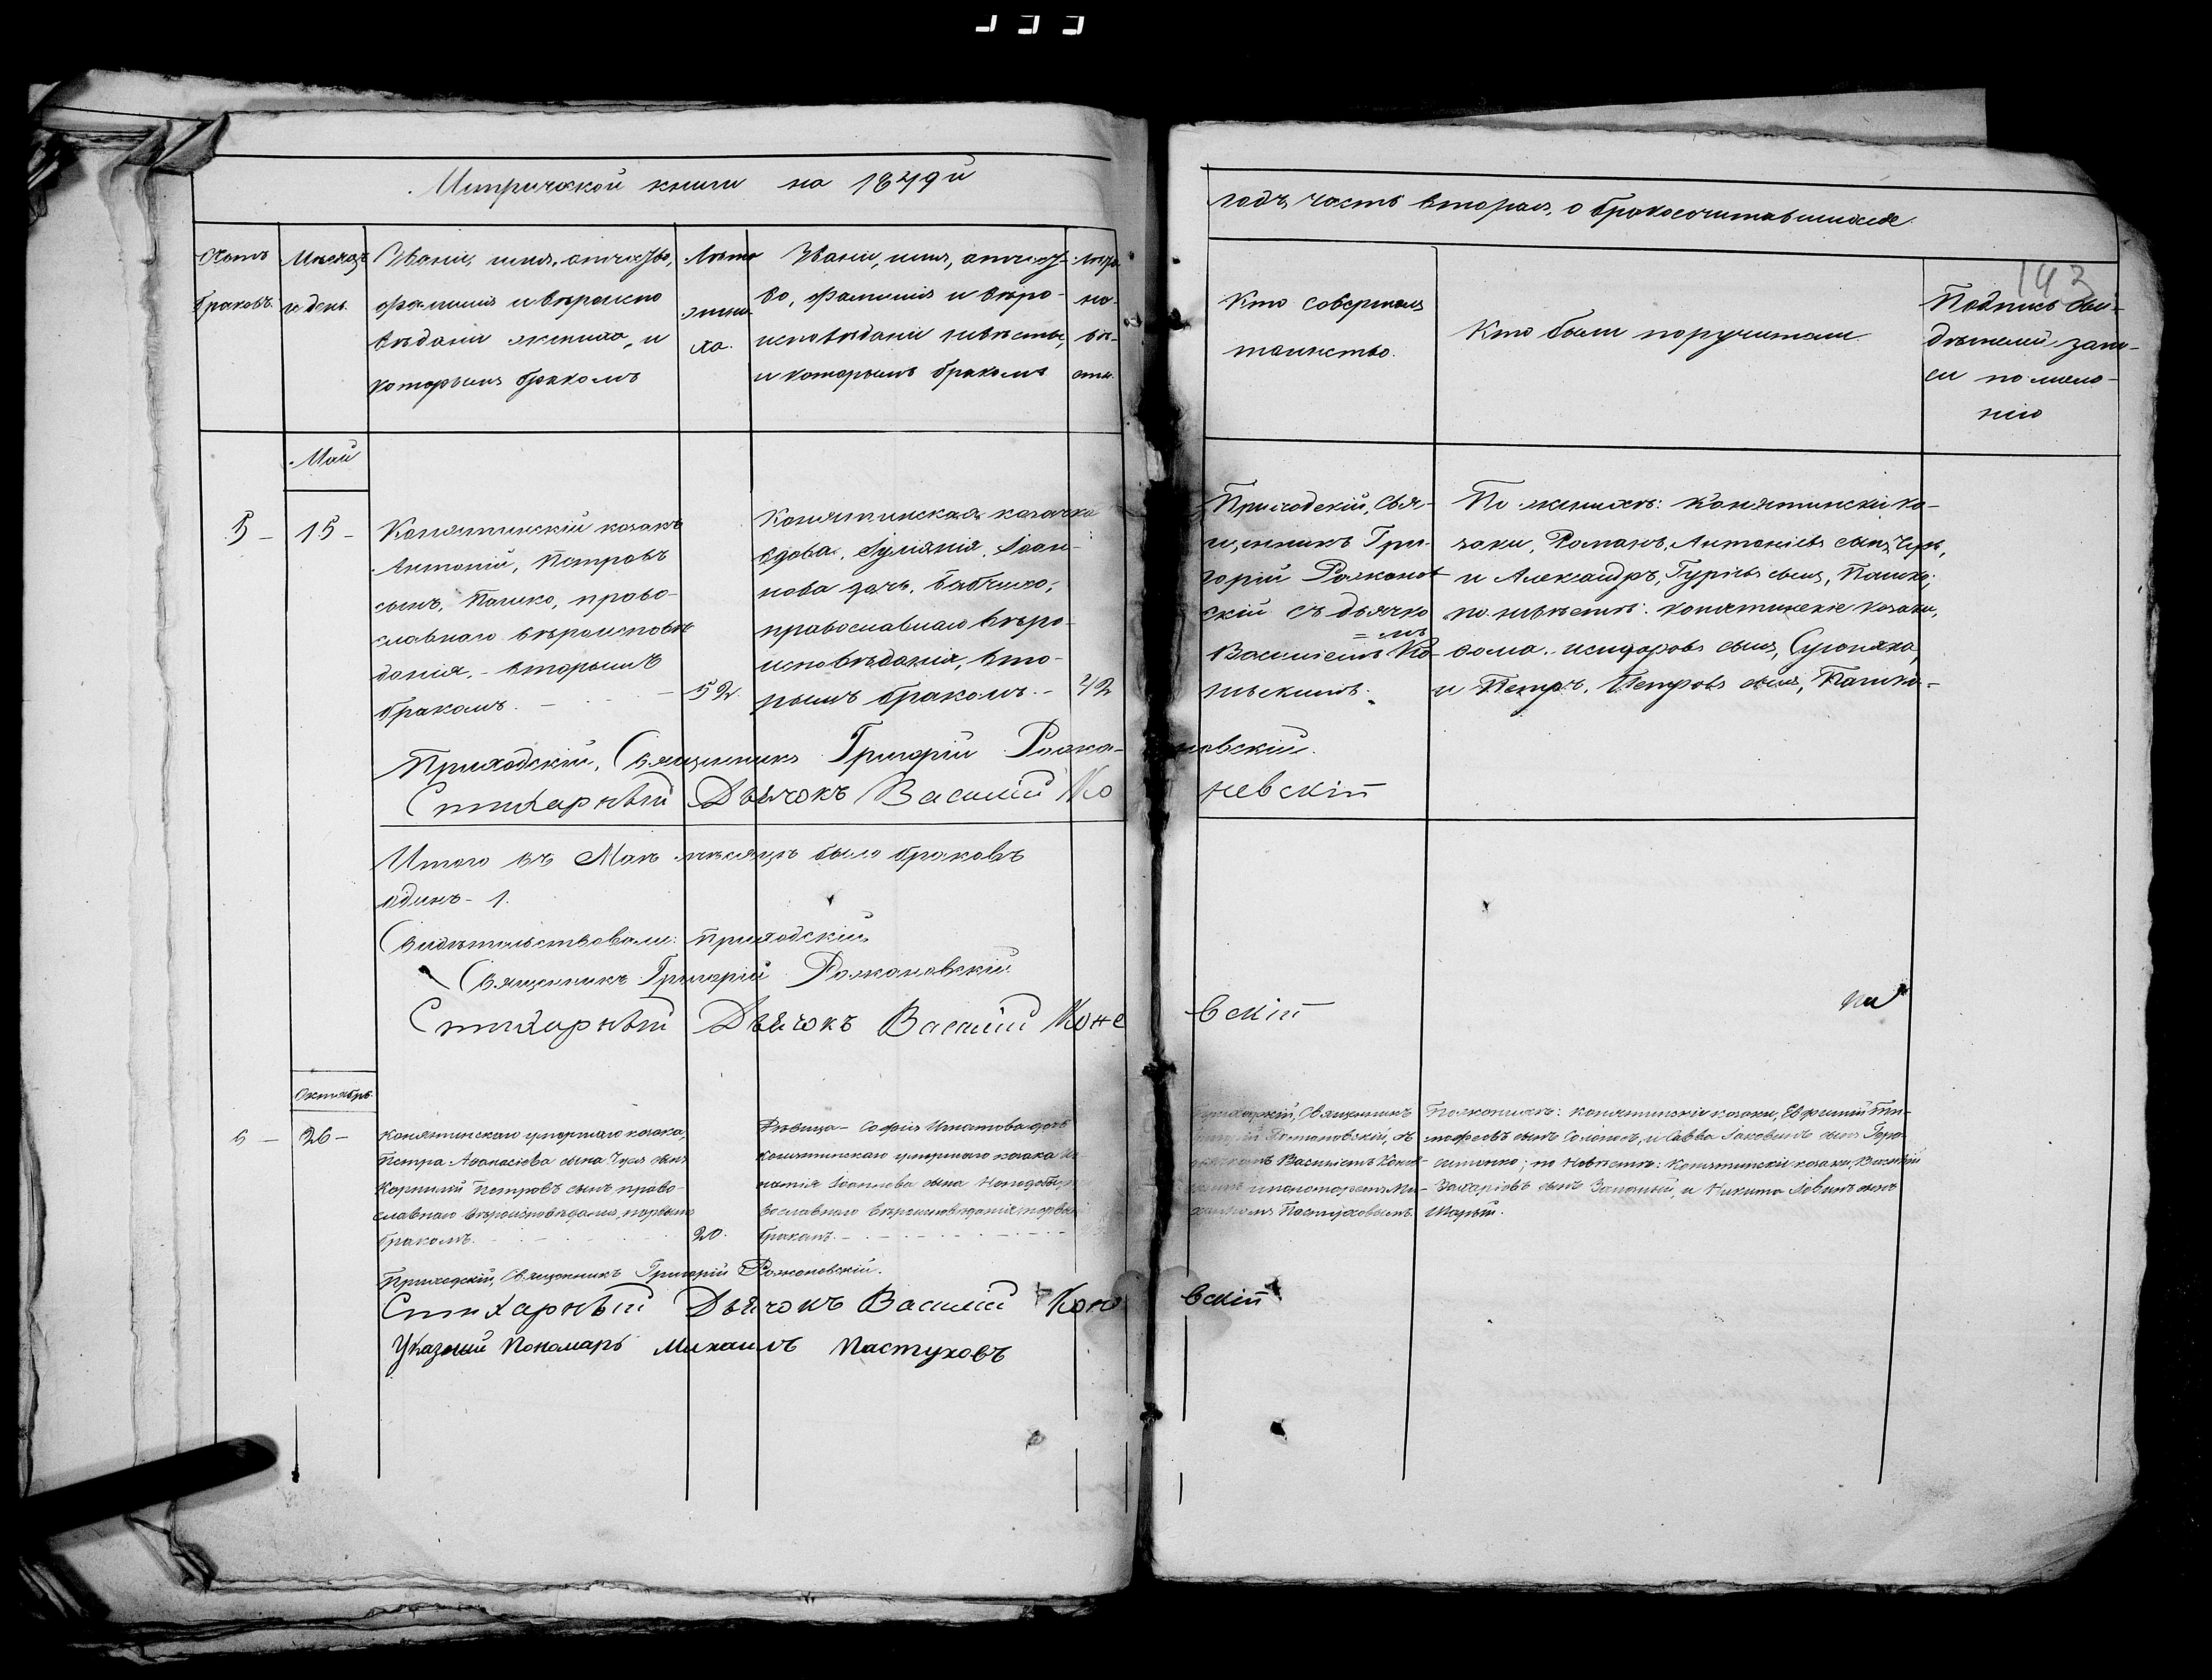 Метрической книги на 1849й
годъ, часть вторая, о бракосочитавшихся
193
Счетъ
браковъ.
Мѣсяцъ
и день.
Званіе, имя, отчество,
фамилія и вѣроиспо
вѣданіе жениха, и
которымъ бракомъ
Лѣта
жени
ха.
Званіе, имя, отчест-
во, фамилія и вѣро-
исповѣданіе невѣсты,
и которымъ бракомъ
Лѣта
не-
вѣ-
сты.
Кто совершалъ
таинство.
Кто были поручители
Подпись сви-
дѣтелей запи-
си по жела-
нію
Май
5 - 15 -
Конятинскій козакъ
Антоній, Петровъ
сынъ, Пашко, право-
славнаго вѣроисповѣ
данія, - вторымъ
бракомъ. - 52.
Конятинская козачка
вдова, Іуліанія, Іоан-
нова дочь, Бабчиха,
православнаго вѣро-
исповѣданія, вто-
рымъ бракомъ. - 42
Приходскій, Свя-
щенникъ Гри-
горій Рожанов
скій съ дьячко
=мъ
Василіемъ Ко-
невскимъ.
По женихѣ: Конятинскіи ко-
заки, Романъ, Антоніевъ сынъ,
и Александръ, Гуріевъ сынъ, Пашко;
по невѣстѣ: конятинскіе козаки,
Ѳома, сынъ,
и Петръ, Петровъ сынъ, Пашко -
Приходскій, Священникъ Григорій Рожа-
новскій.
Стихарный Дьячокъ Василій Ко
невскій
Итого въ Маѣ мѣсяцѣ было браковъ
одинъ - 1.
Свидѣтельствовали: приходскій
Священникъ Григорій Рожановскій
Стихарный Дьячокъ Василій Коне
вскій
Октябрь
6 - 26 -
Конятинскаго умершаго козака,
Петра Аѳанасіева сына сынъ
Корнилій Петровъ сынъ, право-
славнаго вѣроисповѣданія, первымъ
бракомъ. - 20.
Дѣвица - Софія Игнатова дочь
конятинскаго умершаго козака Иг
натія Іоаннова сына
вославнаго вѣроисповѣданія первымъ
бракомъ. -
Приходскій, Священникъ
Григорій Рожановскій, съ
дьячкомъ Василіемъ Конев-
скимъ и пономаремъ Ми-
хаиломъ Пастуховымъ.
По женихѣ: конятинскіе козаки, Евфимій Ти-
моѳеевъ сынъ и Савва Іаковлевъ сынъ
по Невѣстѣ: Конятинскіи козаки, Василій
Захаріевъ сынъ и Никита сынъ
Приходскій, Священникъ Григорій Рожановскій.
Стихарный Дьячокъ Василій Коне
вскій
Указный Пономарь Михаилъ Пастуховъ